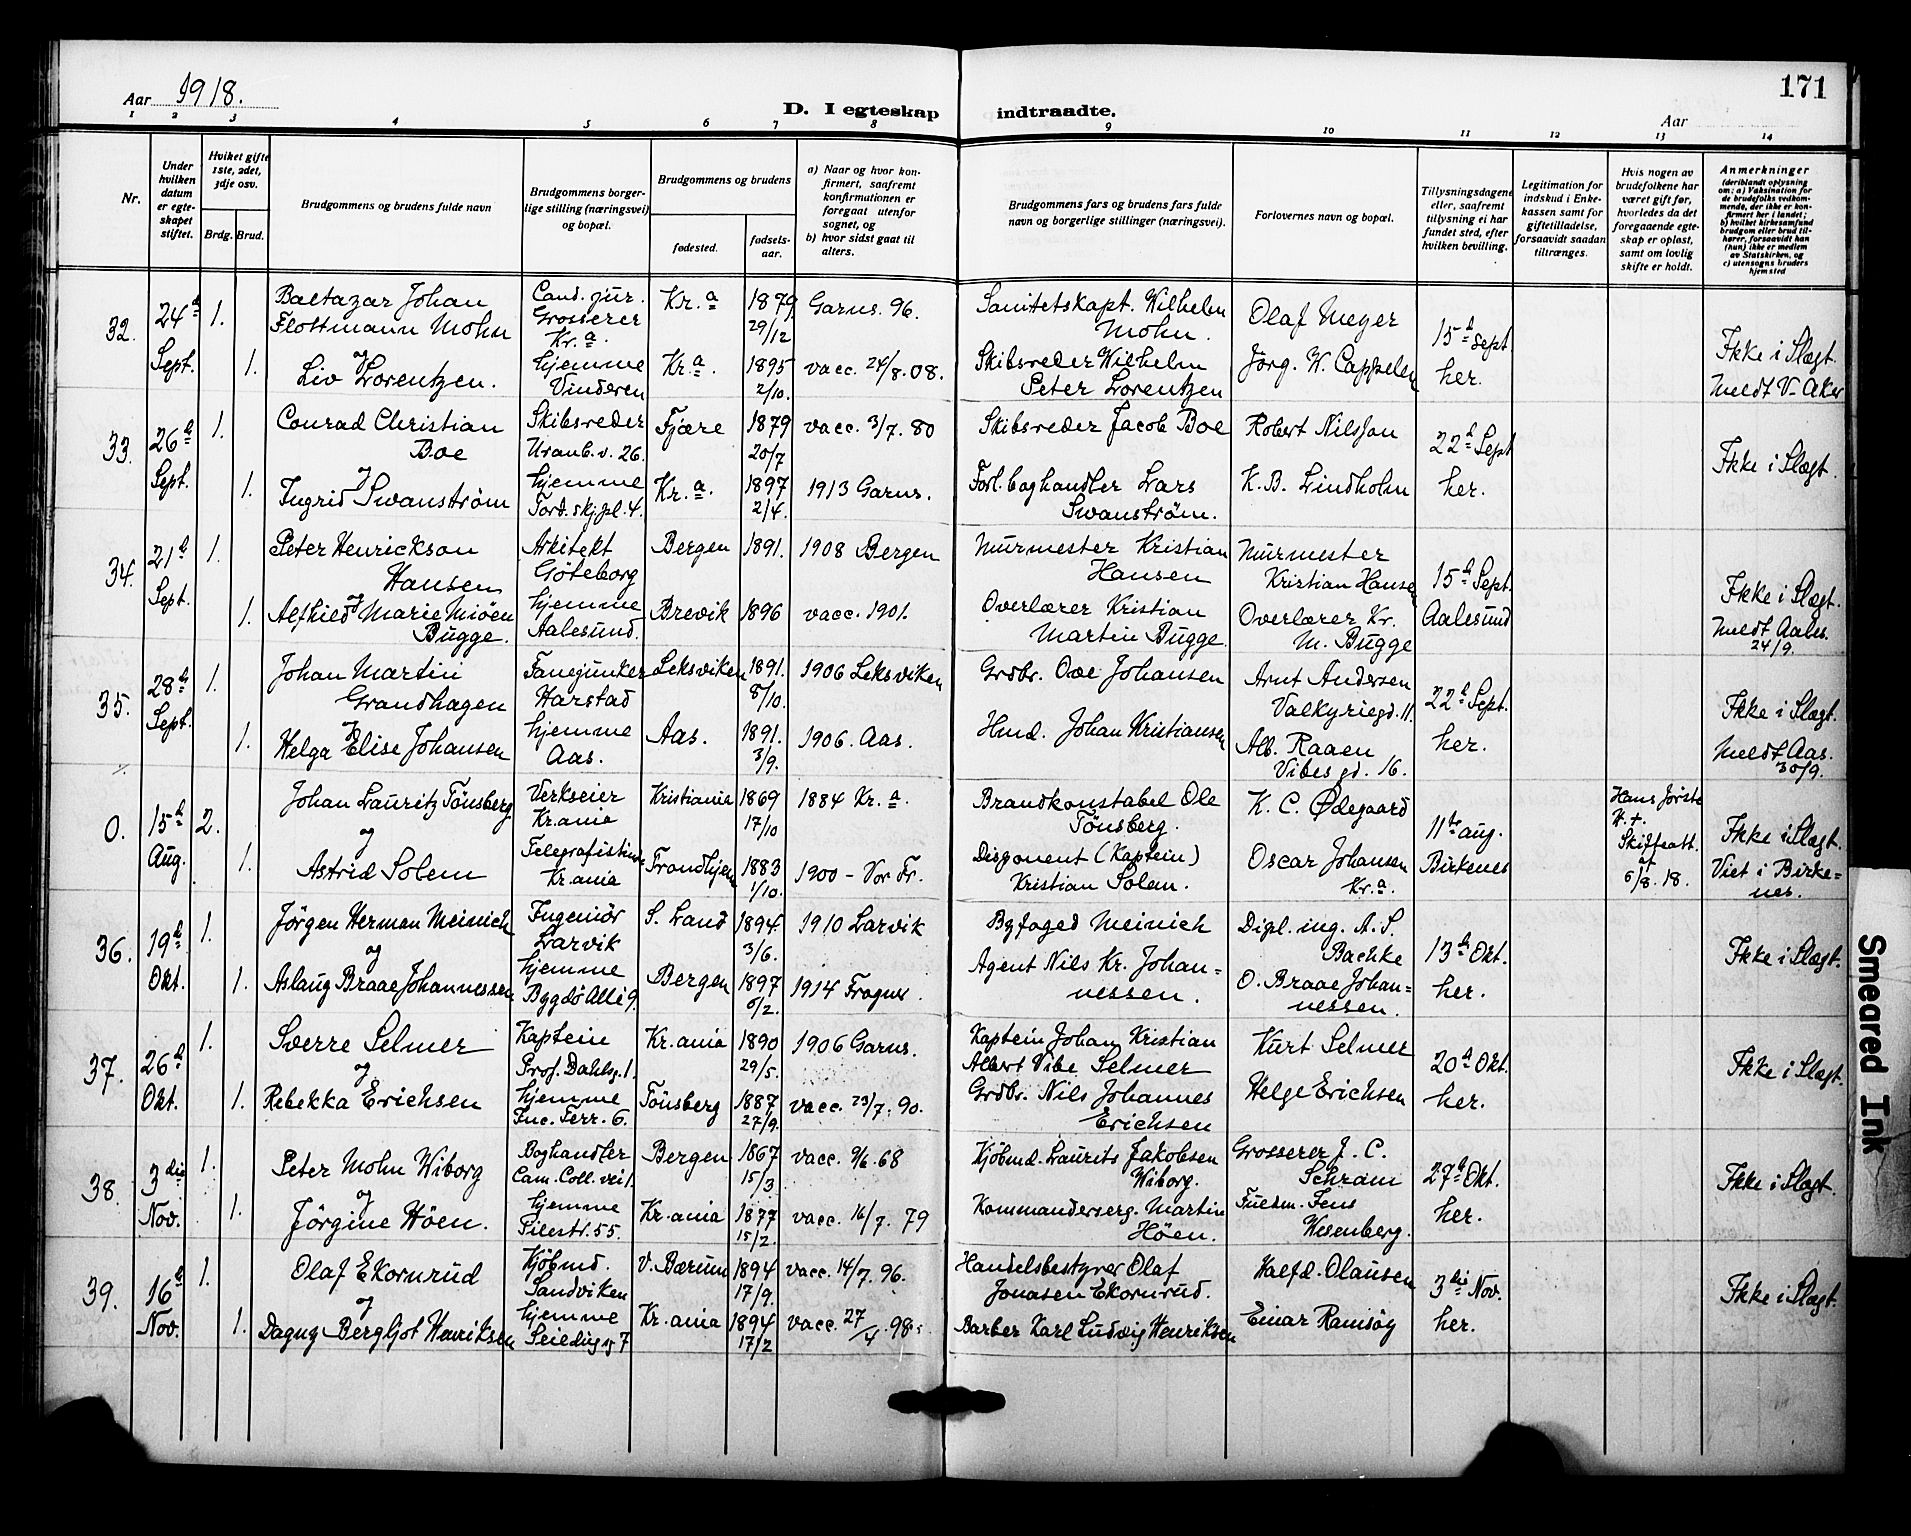 171
Aar 1918.
D. I egteskap indtraadte.
Aar
1 2 3 4 5 6 7 8 9 10 11 12 13 14
Nr.
Under hvilken datum er egteskapet stiftet.
Hvilket gifte 1ste, 2det, 3dje osv.
Brdg. Brud.
Brudgommens og brudens fulde navn
Brudgommens borgerlige stilling (næringsvei) og bopæl.
Brudgommens og brudens
fødested.
fødselsaar.
a) Naar og hvor konfirmert, saafremt konfirmationen er foregaat utenfor sognet, og b) hvor sidst gaat til alters.
Brudgommens fars og brudens fars fulde navn og borgerlige stillinger (næringsvei).
Forlovernes navn og bopæl.
Tillysningsdagene eller, saafremt tillysning ei har fundet sted, efter hvilken bevilling.
Legitimation for indskud i Enkekassen samt for giftetilladelse, forsaavidt saadan tiltrænges.
Hvis nogen av brudefolkene har været gift før, hvorledes da det foregaaende egteskap er opløst, samt om lovlig skifte er holdt.
Anmerkninger (deriblandt oplysning om: a) Vaksination for de brudefolks vedkommende, der ikke er konfirmert her i landet; b) hvilket kirkesamfund brudgom eller brud tilhører, forsaavidt han (hun) ikke er medlem av Statskirken, og c) utensogns bruders hjemsted
32. 24d Sept. 1. Baltazar Johan Flottmann Mohn Cand. jur. Grosserer Kr.a. Kr.a 1879 29/12 Garns. 96. Sanitetskapt. Wilhelm Mohn. Olaf Meyer 15d Sept
og 1. Liv Lorentzen. hjemme Vinderen Kr.a. 1895 2/10. vacc. 24/8. 08. Skibsreder Wilhelm Peter Lorentzen Jørg. W. Cappelen her. Ikke i Slægt. Meldt V. Aker
33. 26d Sept. 1. Conrad Christian Boe Skibsreder Uranb.v. 26. Fjære 1879 20/7 vacc. 3/7. 80 Skibsreder Jacob Boe Robert Nilsson 22d Sept
og 1. Ingrid Swanström hjemme Tord.skj.pl. 4. Kr.a. 1897 2/4. 1913 Garns. Forl.boghandler Lars Swanström. K. B. Lindholm her. Ikke i Slægt.
34. 21d Sept. 1. Peter Henrickson Hansen Arkitekt Göteborg Bergen 1891. 1908 Bergen Murmester Kristian Hansen Murmester Kristian Hanse 15d Sept.
og 1. Alfhild Marie Miöen Bugge. hjemme Aalesund. Brevik 1896 vacc. 1901. Overlærer Kristian Martin Bugge. Overlærer Kr. M. Bugge Aalesund Ikke i Slægt. Meldt Aales. 24/9.
35. 28d Sept. 1. Johan Martin Grandhagen Fanejunker Harstad Leksviken 1891. 8/10. 1906 Leksviken Grdbr. Ove Johansen Arnt Andersen Valkyriegd. 11. 22d Sept.
og 1. Helga Elise Johansen hjemme Aas. Aas. 1891. 3/9. 1906. Aas. Hmd. Johan Kristiansen Alb. Raaen Vibes gd. 16. her. Ikke i Slægt. Meldt Aas. 30/9.
0. 15d Aug. 2. Johan Lauritz Tönsberg Verkseier Kr.ania Kristiania 1869 17/10 1884 Kr.a. Brandkonstabel Ole Tönsberg. K. C. Ødegaard 11te aug. Hans første H. +. Skifteatt. af 6/8. 18.
og 1. Astrid Solem Telegrafistinde Kr.ania Trondhjem 1883 1/10. 1900 - Vor Fr. Disponent (Kaptein) Kristian Solem. Oscar Johansen Kr.a. Birkenes Ikke i Slægt. Viet i Birkenes.
36. 19d Okt. 1. Jörgen Herman Meinich Ingeniör Larvik S. Land 1894. 3/6. 1910 Larvik Byfoged Meinich Dipl. ing. A. S. Bachke 13d Okt.
og 1. Aslaug Braae Johannessen hjemme Bygdö Allé 9. Bergen 1897 6/2. 1914 Frogner. Agent Nils Kr. Johannessen. O. Braae Johannessen. her. Ikke i Slægt.
37. 26d Okt. 1. Sverre Selmer Kaptein Prof. Dahlsg. 1. Kr.ania 1890 29/5. 1906 Garns. Kaptein Johan Kristian Albert Vibe Selmer Kurt Selmer 20d Okt.
og 1. Rebekka Erichsen hjemme Inc. Terr. 6. Tönsberg 1887 27/9. vacc. 23/7. 90. Grdbr. Nils Johannes Erichsen Helge Erichsen her. Ikke i Slægt.
38. 3die Nov. 1. Peter Mohn Wiborg Boghandler Cam. Coll. vei 1. Bergen 1867 15/3 vacc. 9/6. 68 Kjöbmd. Laurits Jakobsen Wiborg. Grosserer J. C. Schram 27d Okt.
og 1. Jörgine Höen. hjemme Pilestr. 55. Kr.ania 1877 15/2. vacc. 16/7. 79 Kommandersерg. Martin Höen. Fuldm. Jens Wesenberg. her. Ikke i Slægt.
39. 16d Nov. 1. Olaf Ekornrud Kjöbmd. Sandviken V. Bærum 1894 17/9. vacc. 14/7. 96. Handelsbestyrer Olaf Jonasen Ekornrud. Halfd. Olausen 3die Nov.
og 1. Dagny Bergljot Henriksen hjemme Kr.ania 1894 17/2 vacc. 27/4. 98. Barber Karl Ludvig Henriksen Einar Ramsöy her. Ikke i Slægt.
Smeared Ink